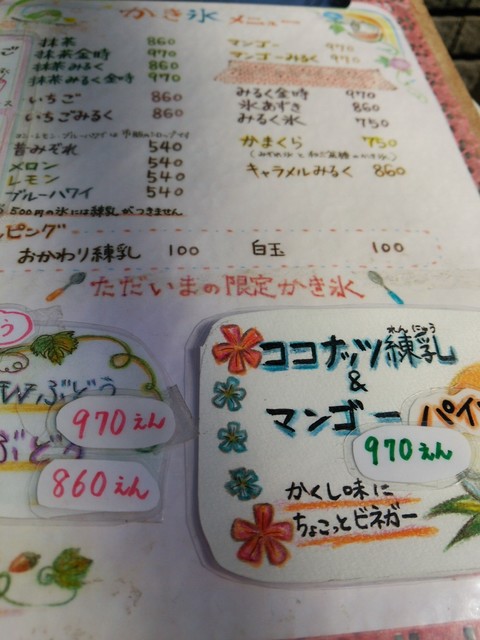 かき氷 メニュー
抹茶 860
抹茶金時 970
抹茶みるく 860
抹茶みるく金時 970
いちご 860
いちごみるく 860
昔みぞれ 540
メロン 540
レモン 540
ブルーハワイ 540
500円の氷には練乳がつきません
マンゴー 970
マンゴーみるく 970
みるく金時 970
氷あずき 860
みるく氷 750
かまくら 750
キャラメルみるく 860
ッピング
おかわり練乳 100 白玉 100
ただいまの限定かき氷
Wぶどう
970えん
ぶどう
860えん
ココナッツ練乳
れんにゅう
&
マンゴー パイ
970えん
かくし味に
ちょこっとビネガー